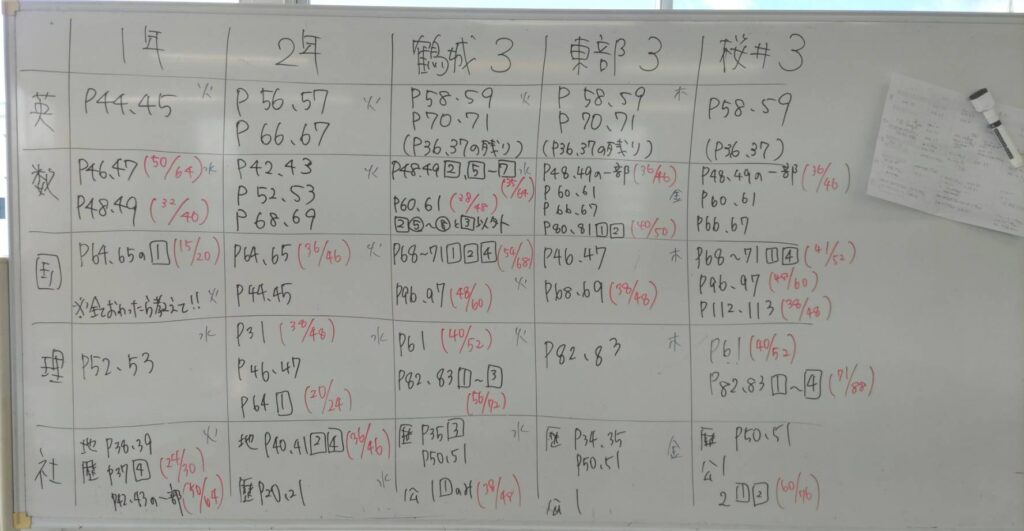 1年 2年 鶴城 3 東部 3 桜井 3
英
P44.45 火
P 56.57 火
P 66.67
P58.59 火
P70.71
(P36.37の残り)
P 58.59 木
P 70.71
(P36.37の残り)
P58.59
(P36.37)
数
P46.47 (50/64) 水
P48.49 (32/40)
P42.43 火
P52.53
P68.69
P48.49 2.5~7 水
P60.61 (38/48)
P48.49の一部 (36/46)
P60.61 金
P66.67
P80.81 1 2 (40/50)
P48.49の一部 (36/46)
P60.61
P66.67
国
P64.65の1 (15/20)
※全ておわったら教えて!! 火
P64.65 (36/46) 火
P44.45
P68~71 1 2 4 (54/68)
P96.97 (48/60) 火
P46.47 木
P68.69 (38/48)
P68~71 1 4 (41/52)
P96.97 (48/60)
P112.113 (38/48)
理
P52.53 水
P31 (38/48) 水
P46.47
P64 1 (20/24)
P61 (40/52) 火
P82.83 1~3
P82.83 木
P61 (40/52)
P82.83 1~4 (71/88)
社
地 P38.39 火
歴 P37 4 (24/30)
P42.43の一部 (50/64)
地 P40.41 2 4 (36/46) 水
歴 P20.21
歴 P35 3 水
P50.51
公 1 1のみ (38/48)
歴 P34.35
P50.51 金
公 1
歴 P50.51
公 1
2 1 2